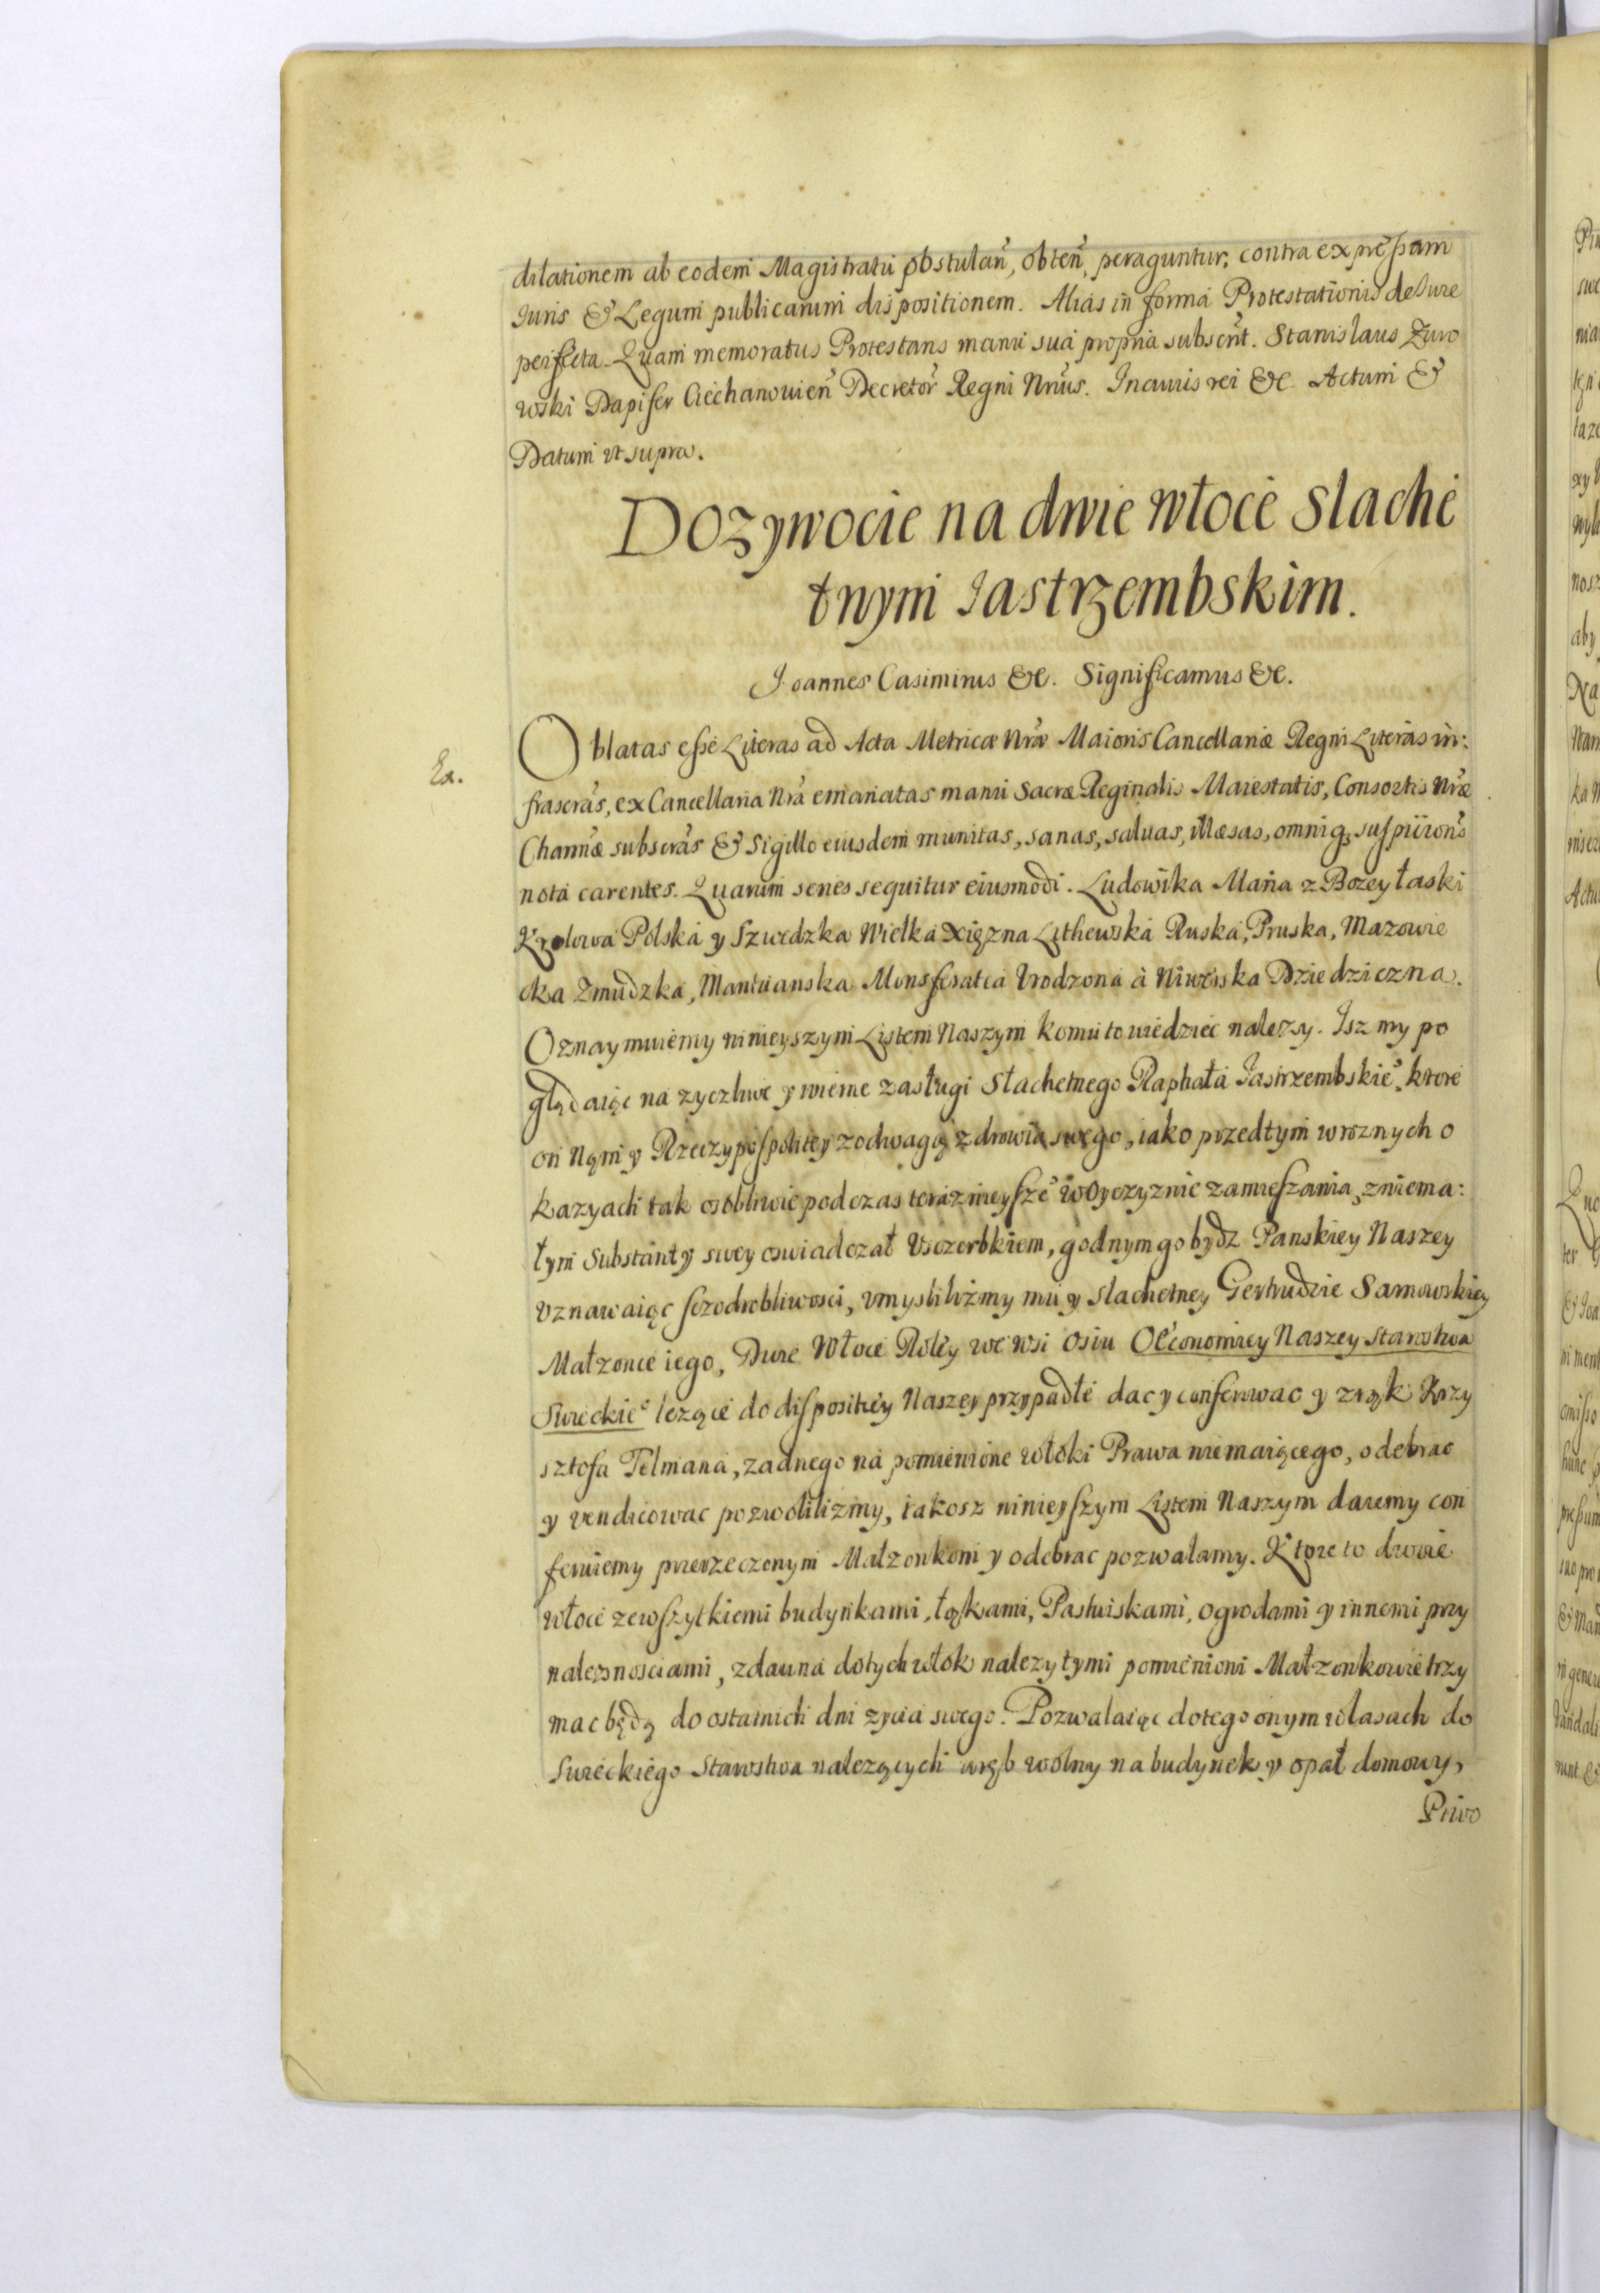 dilationem ab eodem Magistratu obstulañ, obteñ, peraguntur, contra expressam
Iuris & Legum publicarum dispositionem. Alias in forma Protestationis de Iure
perfecta. Quam memoratus Protestans manu sua propria subscrt. Stanislaus Zuro
wski Dapifer Ciechanowieñ Decretor Regni Nrus. In cuius rei &c. Actum &
Datum ut supra.
Dozywocie na dwie włoce Slache
tnym Iastrzembskim.
Joannes Casimirus &c. Significamus &c.
Oblatas esse Literas ad Acta Metricæ Nræ Maioris Cancellariæ Regni Literas in:
Ex.
frascras, ex Cancellaria Nra emanatas manu Sacræ Reginalis Maiestatis, Consortis Nræ
Charmæ subscras & Sigillo eiusdem munitas, sanas, saluas, illæsas, omniq suspiions
nota carentes. Quarum series sequitur eiusmodi. Ludowika Maria z Bozey łaski
Krolowa Polska y Szwedzka Wielka Xiężna Lithewska Ruska, Pruska, Mazowie
cka Zmudzka, Mantuanska Monsferatca Urodzona à Niwerska Dziedziczna.
Oznaymuiemy ninieyszym Listem Naszym komu to wiedziec nalezy. Isz my po
glądaiąc na zyczliwe y wierne zasługi Slachetnego Raphała Iastrzembskie, ktore
on Nąm y Rzeczypospolitey z odwagą zdrowia swego, iako przedtym w roznych o
kazyach tak osobliwie podczas teraznieysze w Oyczyznie zamieszania, z niema:
łym Substanty swey oswiadczał Uszczerbkiem, godnym go bydz Panskiey Naszey
uznawaiąc szczodrobliwosci, umyslilismy mu y Slachetney Gertrudzie Sarnowskiey
Małzonce iego, Dwie Włoce Roley we wsi Osiu Oeconomiey Naszey Starostwa
Swieckie lezące do dispositiey Naszey przypadłe dac y conferowac y z rąk Krzy
sztofa Telmana, zadnego na pomienione włoki Prawa nie maiącego, odebrac
y vendicowac pozwolilizmy, iakosz ninieyszym Listem Naszym daiemy con
feruiemy przerzeczonym Małzonkom y odebrac pozwalamy. Ktore to dwie
włoce ze wszytkiemi budynkami, łąkami, Pastwiskami, ogrodami y innemi przy
naleznosciami, zdawna do tych włok nalezytymi pomienioni Małzonkowie trzy
mac będą do ostatnich dni zycia swego. Pozwalaiąc do tego onym w lasach do
Swieckiego Starostwa nalezących wrąb wolny na budynek y opał domowy,
Piwo